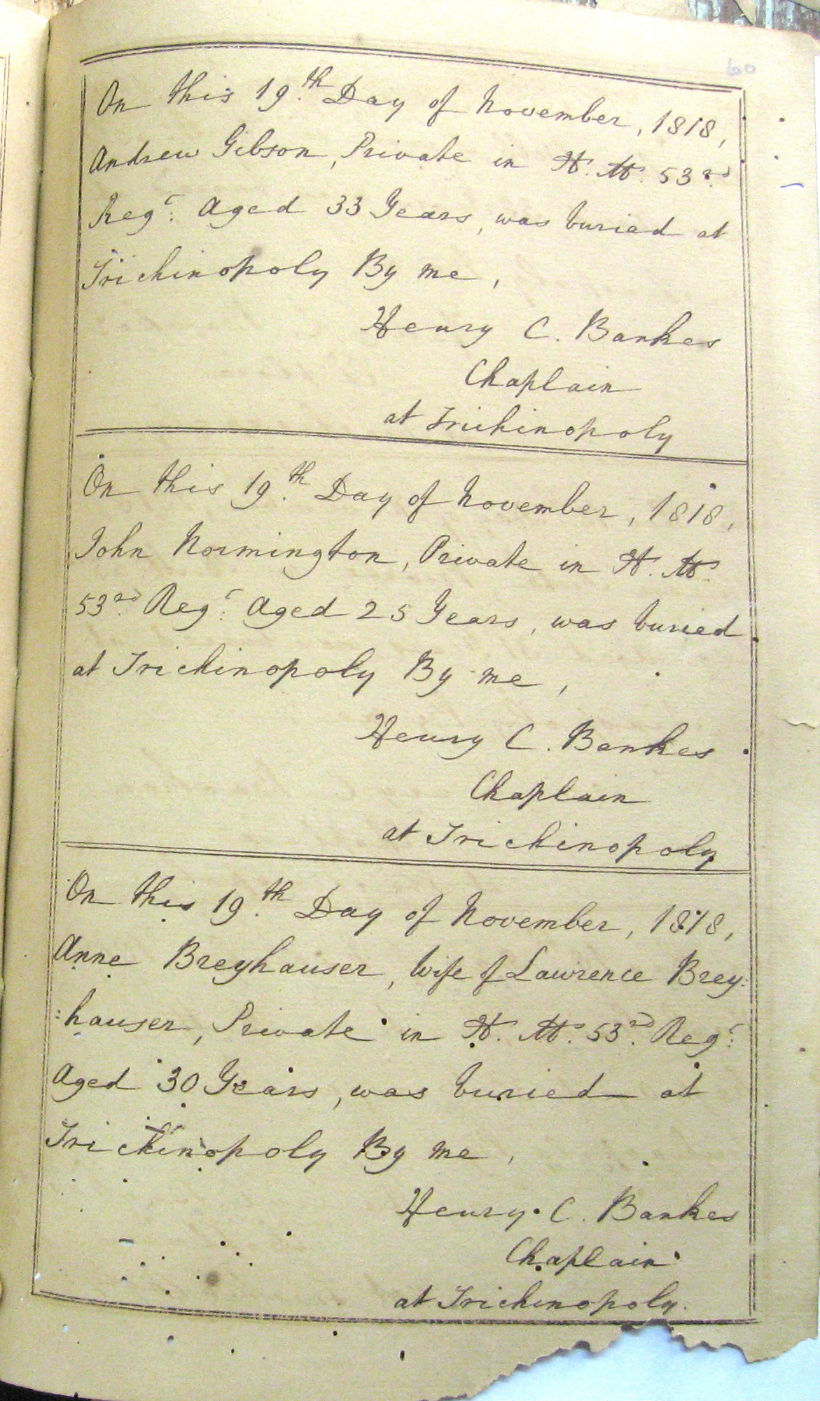 60
On this 19.th Day of November, 1818,
Andrew Gibson, Private in H. M. 53.rd
Reg.t Aged 33 Years, was buried at
Trichinopoly By me,
Henry C. Bankes
Chaplain
at Trichinopoly
On this 19.th Day of November, 1818,
John Normington, Private in H. M.
53.rd Reg.t Aged 25 Years, was buried
at Trichinopoly By me,
Henry C. Bankes
Chaplain
at Trichinopoly
On this 19.th Day of November, 1818,
Anne Breyhauser, Wife of Lawrence Brey:
:hauser, Private in H. M. 53.rd Reg.t
Aged 30 Years, was buried at
Trichinopoly By me,
Henry C. Bankes
Chaplain
at Trichinopoly.